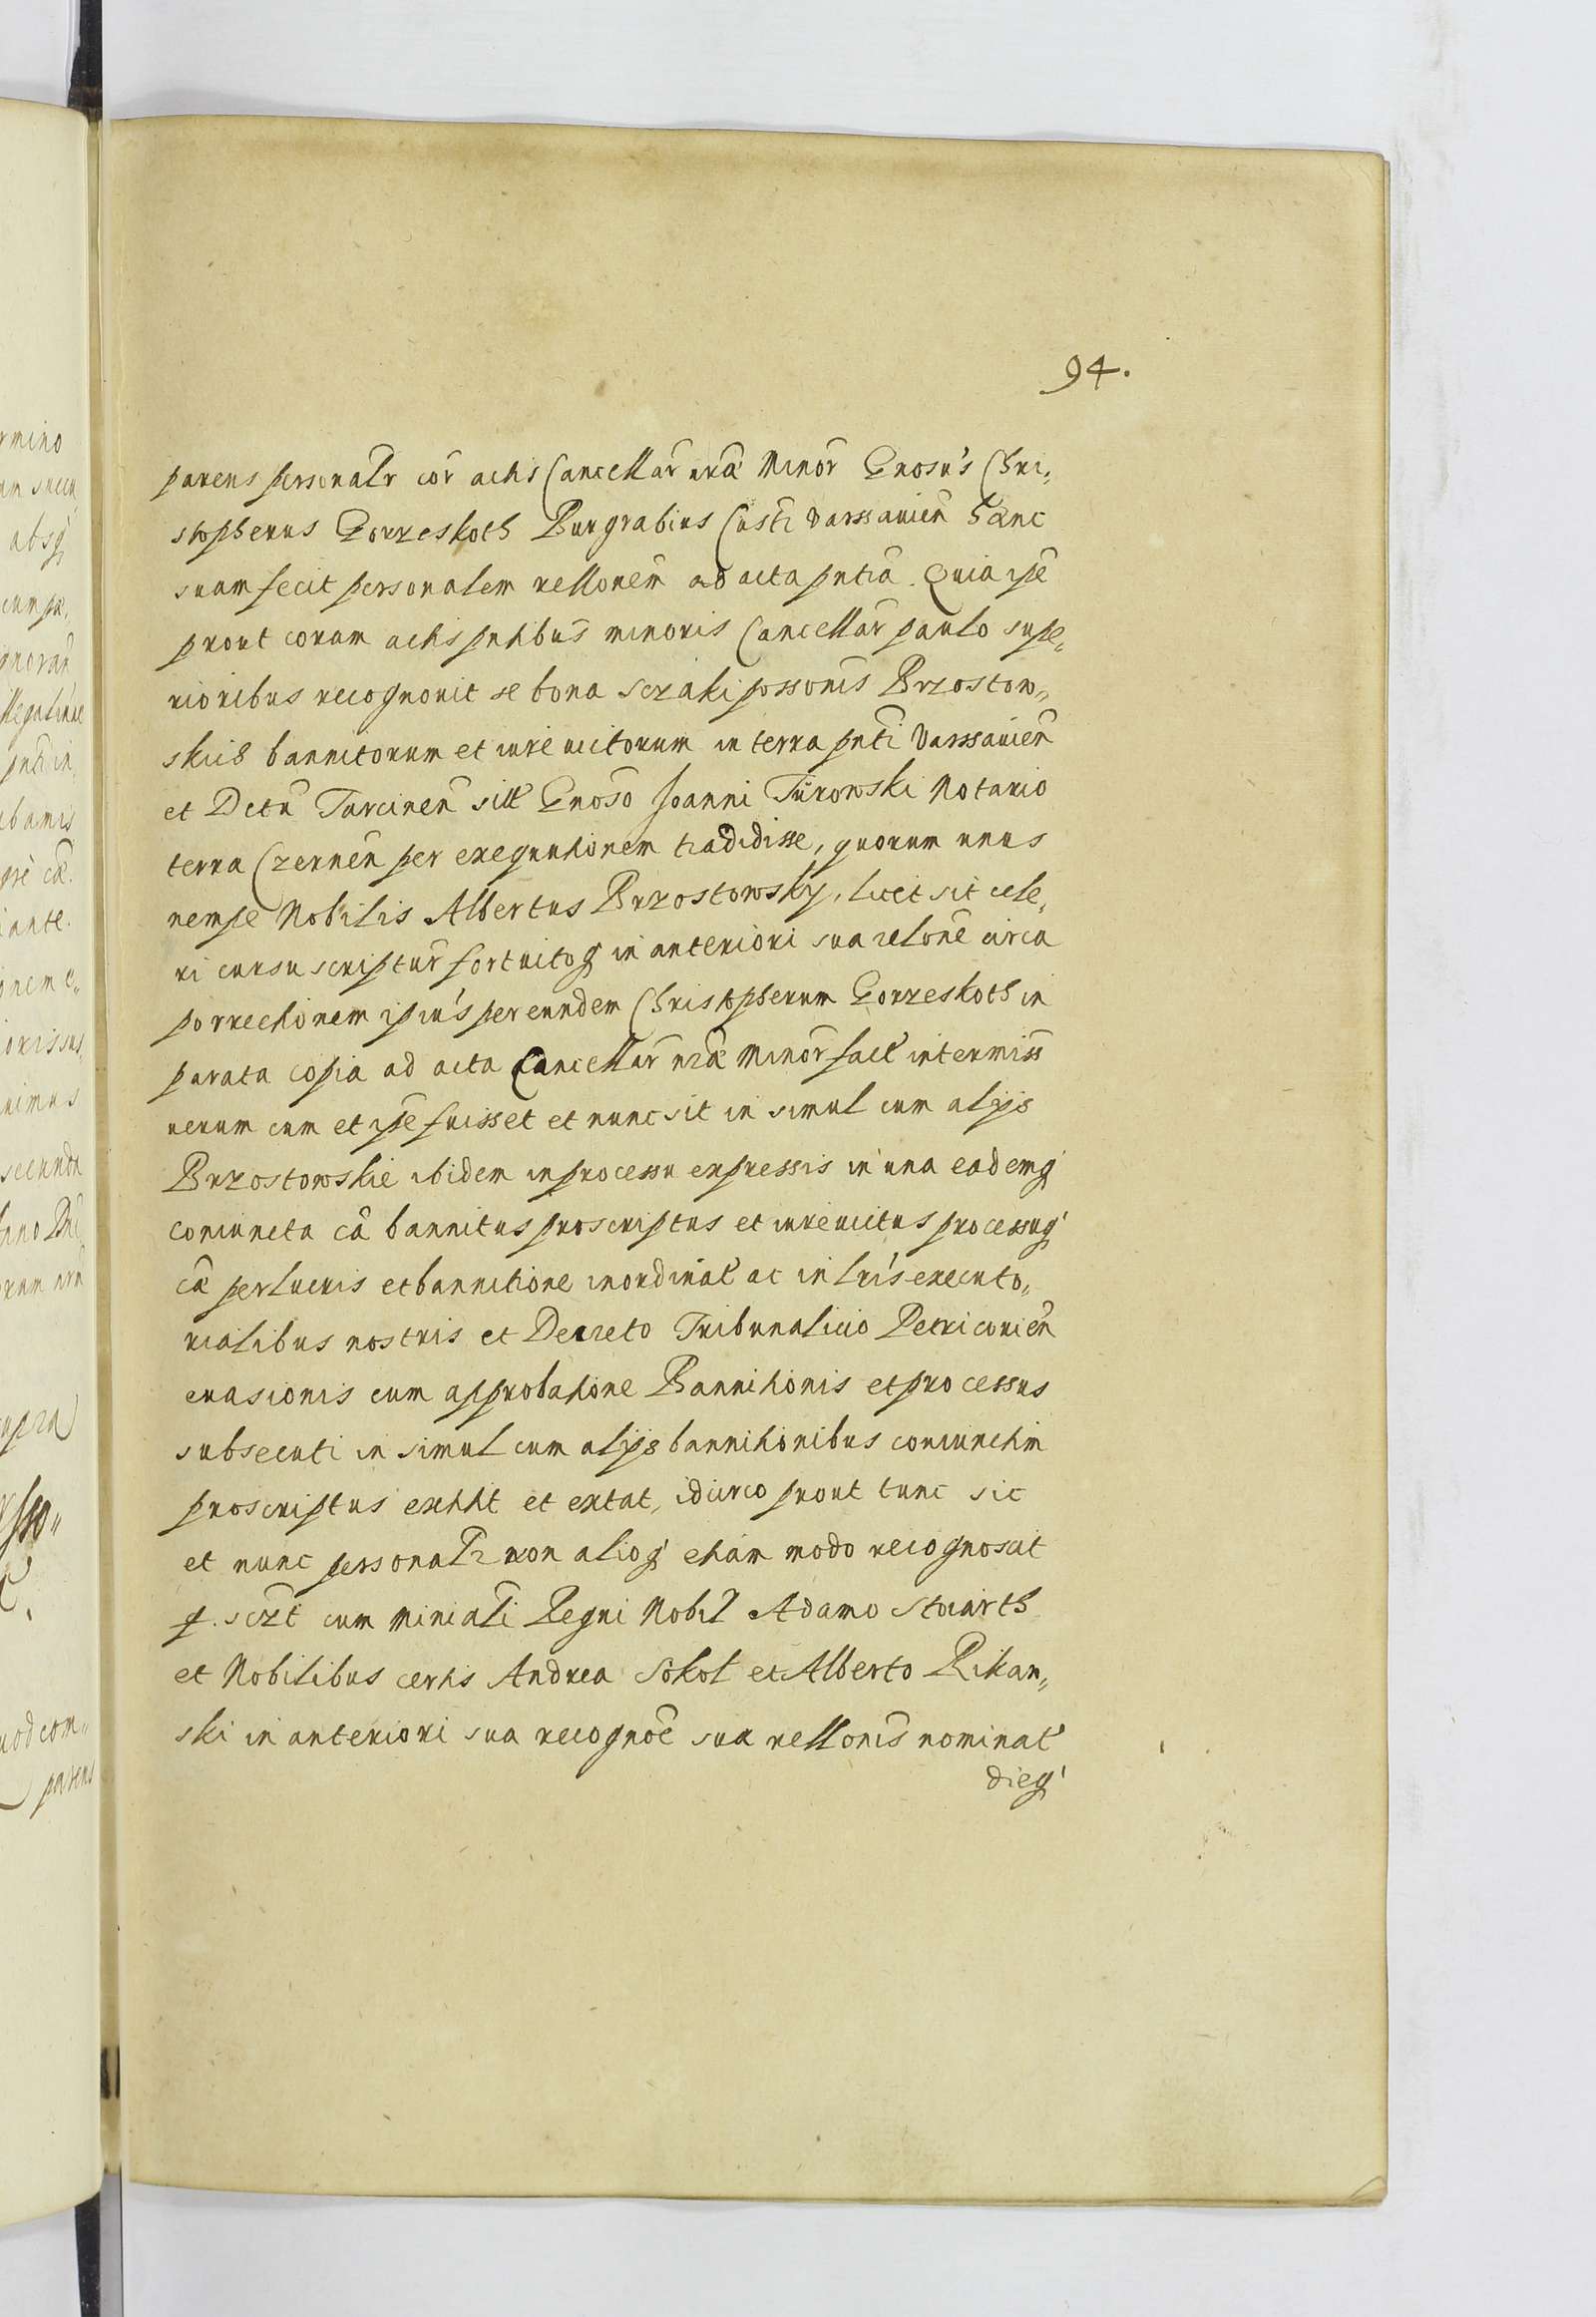 94.
parens personalr cor actis Cancellar nrã Minor Gnosus Chri-
stopherus Gorzeskoth Burgrabius Castri Varssauien hanc
suam fecit personalem rellonem ad acta pntia. Quia ipse
prout coram actis pntibus minoris Cancellar paulo supe-
rioribus recognouit se bona Sczaki possonis Brzostow-
skiis bannitorum et iure uictorum in terra pnti Varssauien
et Dctu Tarcinen sitt Gnoso Joanni Turowski Notario
terra Czernen per exequutionem tradidisse, quorum unus
nempe Nobilis Albertus Brzostowsky, licet sit cele-
ri cursu scriptur fortuitoq in anteriori sua relone circa
porrectionem ipsius per eundem Christopherum Gorzeskoth in
parata copia ad acta Cancellar nrã Minor fact intermiss
uerum cum et ipse fuisset et nunc sit in simul cum alijs
Brzostowskie ibidem in processu expressis in una eademq
coniuncta cã bannitus proscriptus et iureuictus processuq
cã per lucris et bannitione inordinat ac in lris executo-
rialibus nostris et Decreto Tribunalicio Petricouien
euasionis cum approbatione Bannitionis et processus
subsecuti in simul cum alijs bannitionibus coniunctim
proscriptus extitit et extat, idcirco prout tunc sic
et nunc personalr non alioq etiam modo recognoscit
q. sczt cum Miniali Regni Nobil Adamo Stuarth
et Nobilibus certis Andrea Sokol et Alberto Rikan-
ski in anteriori sua recognoe sua rellonis nominat
dieq